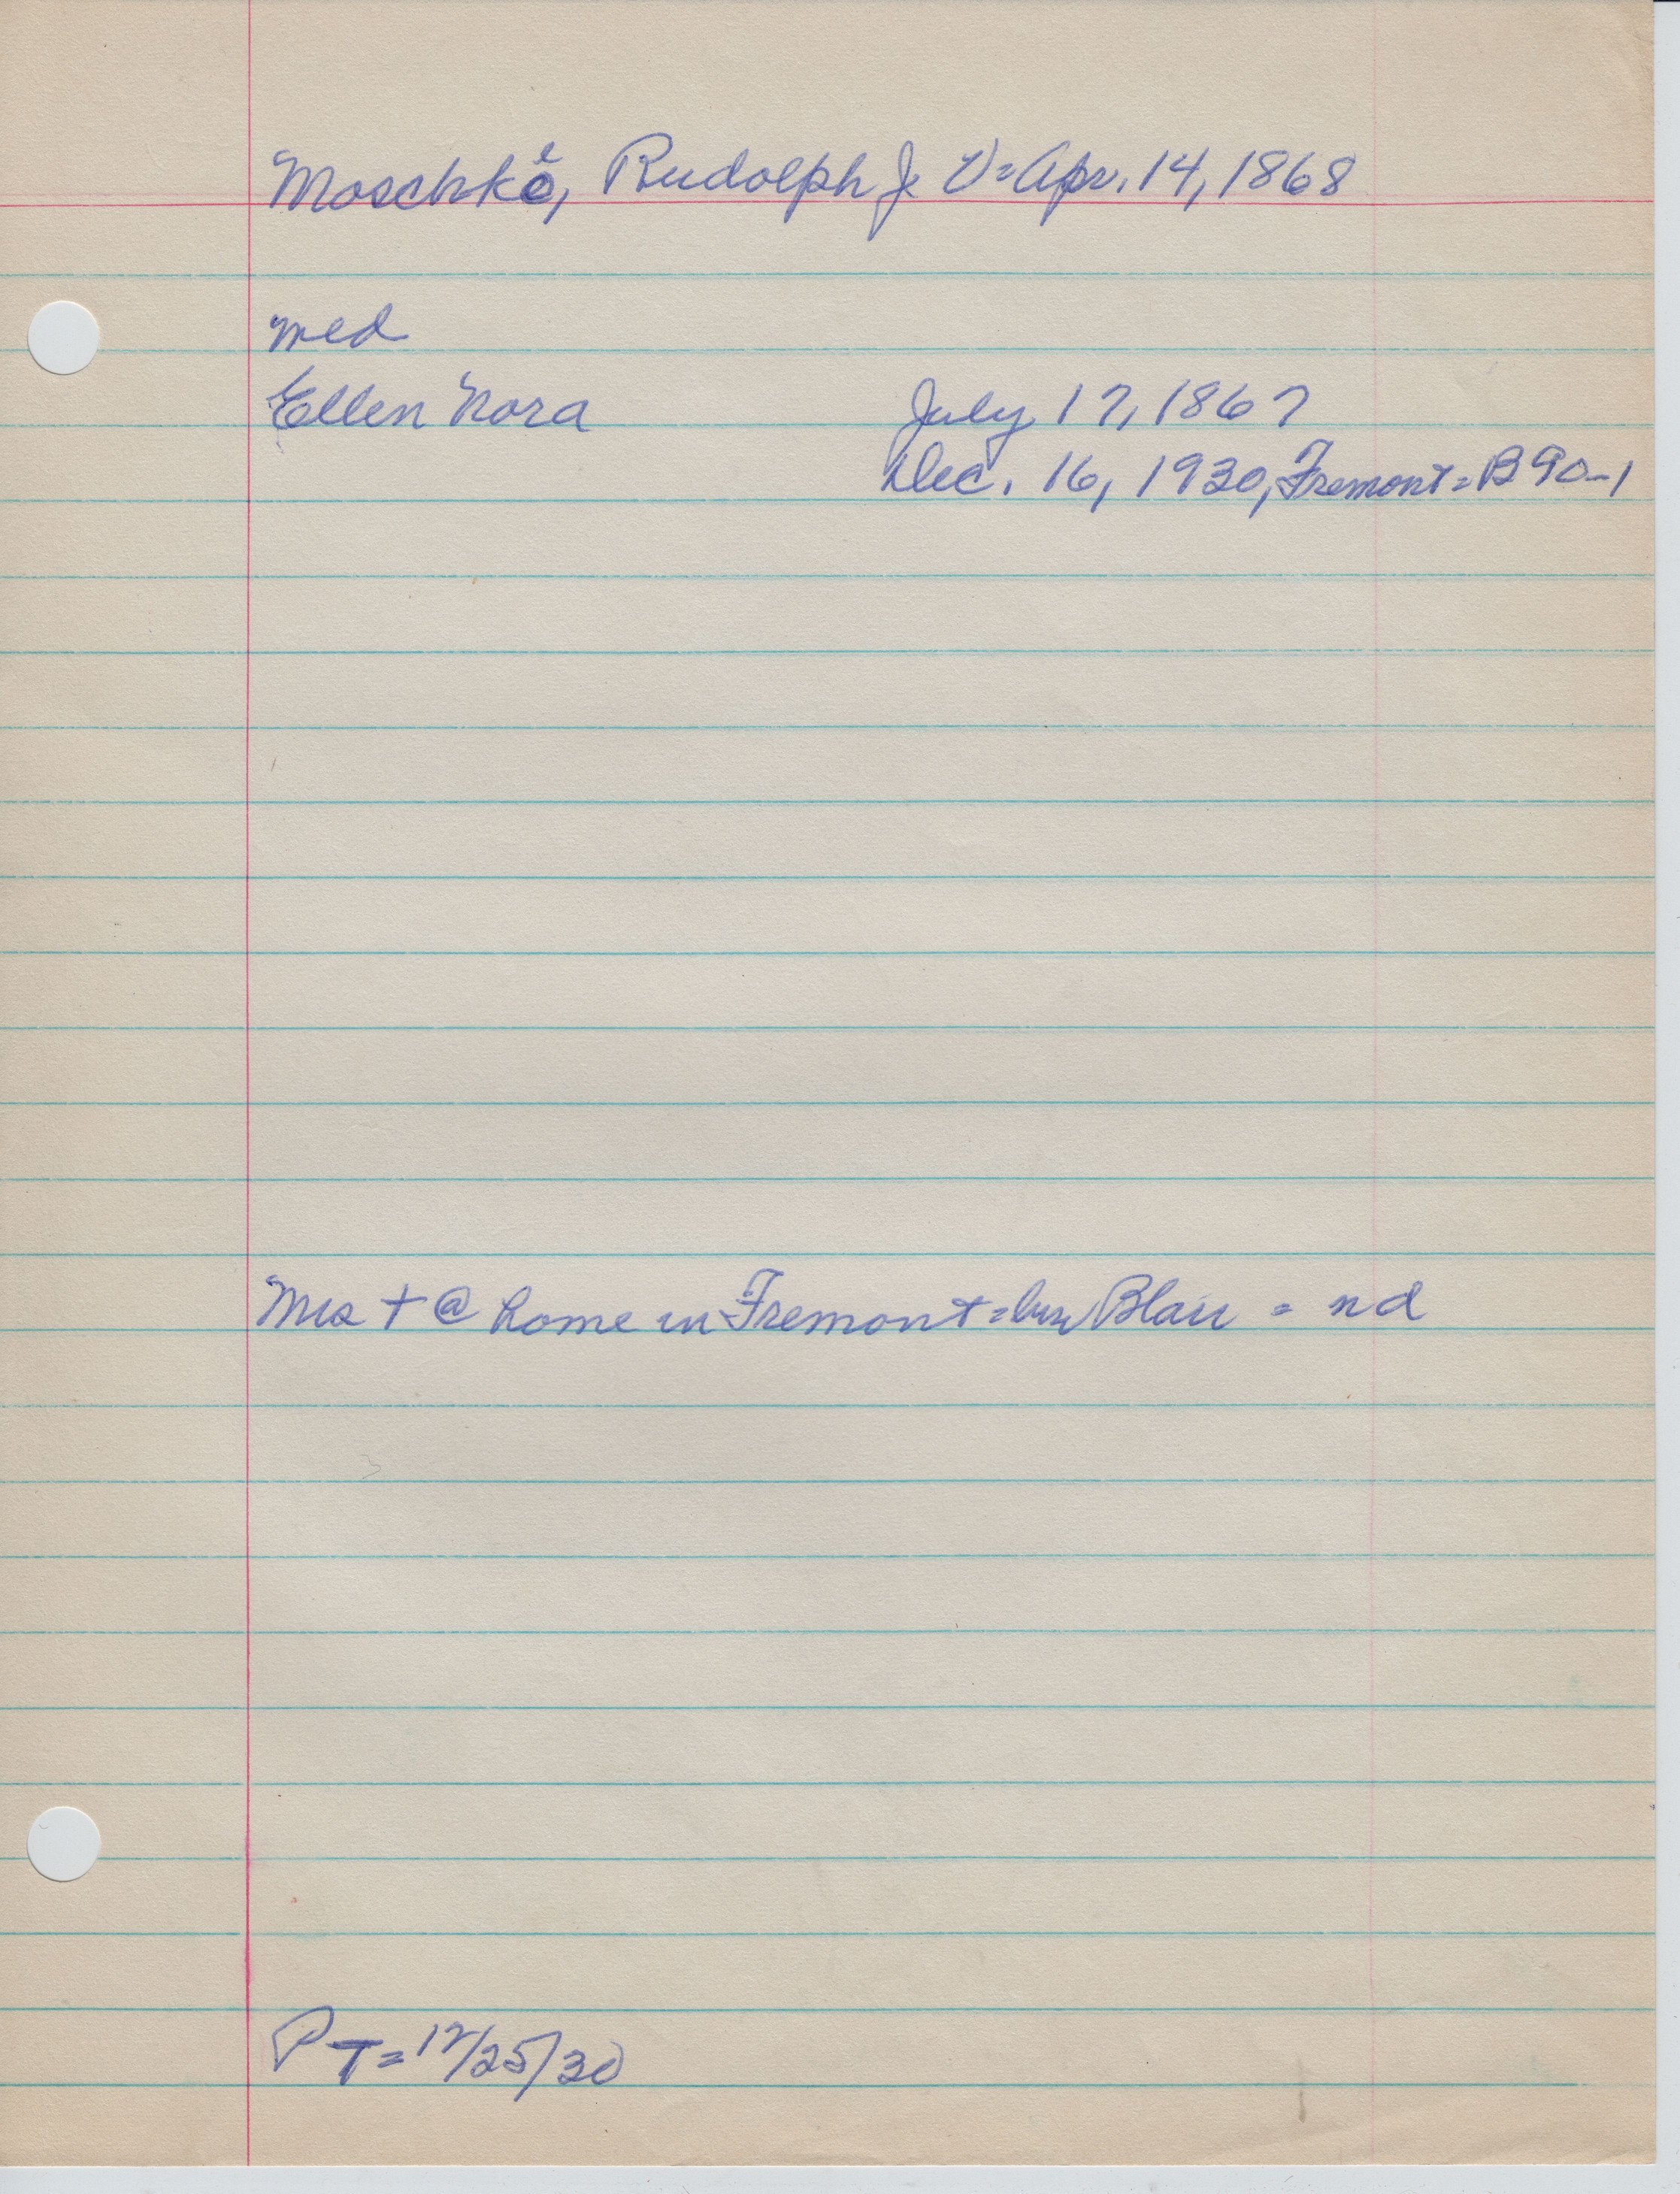 Moschke, Rudolph J. V=Apr. 14, 1868
med
Ellen Nora July 17, 1867
Dec. 16, 1930, Fremont=B90-1
Mrs † @ home in Fremont=bur Blair = nd
PT=12/25/30